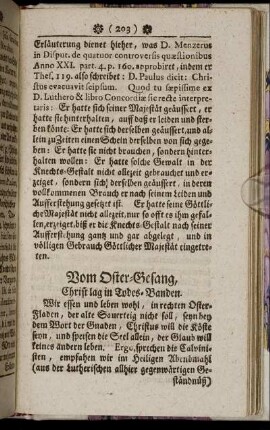 (203)
Erläuterung dienet hieher, was D. Menzerus
in Disput. de quatuor controversis quæstionibus
Anno XXI. part. 4. p. 160. approbiret, indem er
Thes. 119. also schreibet: D. Paulus dicit: Chri-
stus evacuavit seipsum. Quod tu sæpissime ex
D. Luthero & libro Concordiæ sic recte interpre-
taris: Er hatte sich seiner Majestät geäussert, er
hatte sie hinterhalten, auff daß er leiden und ster-
ben könte. Er hatte sich derselben geäussert, und al-
lein zu Zeiten einen Schein derselben von sich gege-
ben: Er hatte sie nicht brauchen, sondern hinter-
halten wollen: Er hatte solche Gewalt in der
Knechts-Gestalt nicht allezeit gebrauchet und er-
zeiget, sondern sich derselben geäussert, in deren
vollkommenen Brauch er nach seinem Leiden und
Aufferstehung gesetzt ist. Er hatte seine Göttli-
che Majestät nicht allezeit, nur so offt es ihm gefal-
len, erzeiget, biß er die Knechts-Gestalt nach seiner
Aufferstehung gantz und gar abgelegt, und in
völligen Gebrauch Göttlicher Majestät eingetre-
ten.
Vom Oster-Gesang,
Christ lag in Todes-Banden.
Wir essen und leben wohl, in rechten Oster-
Fladen, der alte Sauerteig nicht soll, seyn bey
dem Wort der Gnaden, Christus will die Köste
seyn, und speisen die Seel allein, der Glaub will
keines andern leben. Ergo, sprechen die Calvini-
sten, empfahen wir im Heiligen Abendmahl
(aus der Lutherischen allhier gegenwärtigen Ge-
ständnüß)